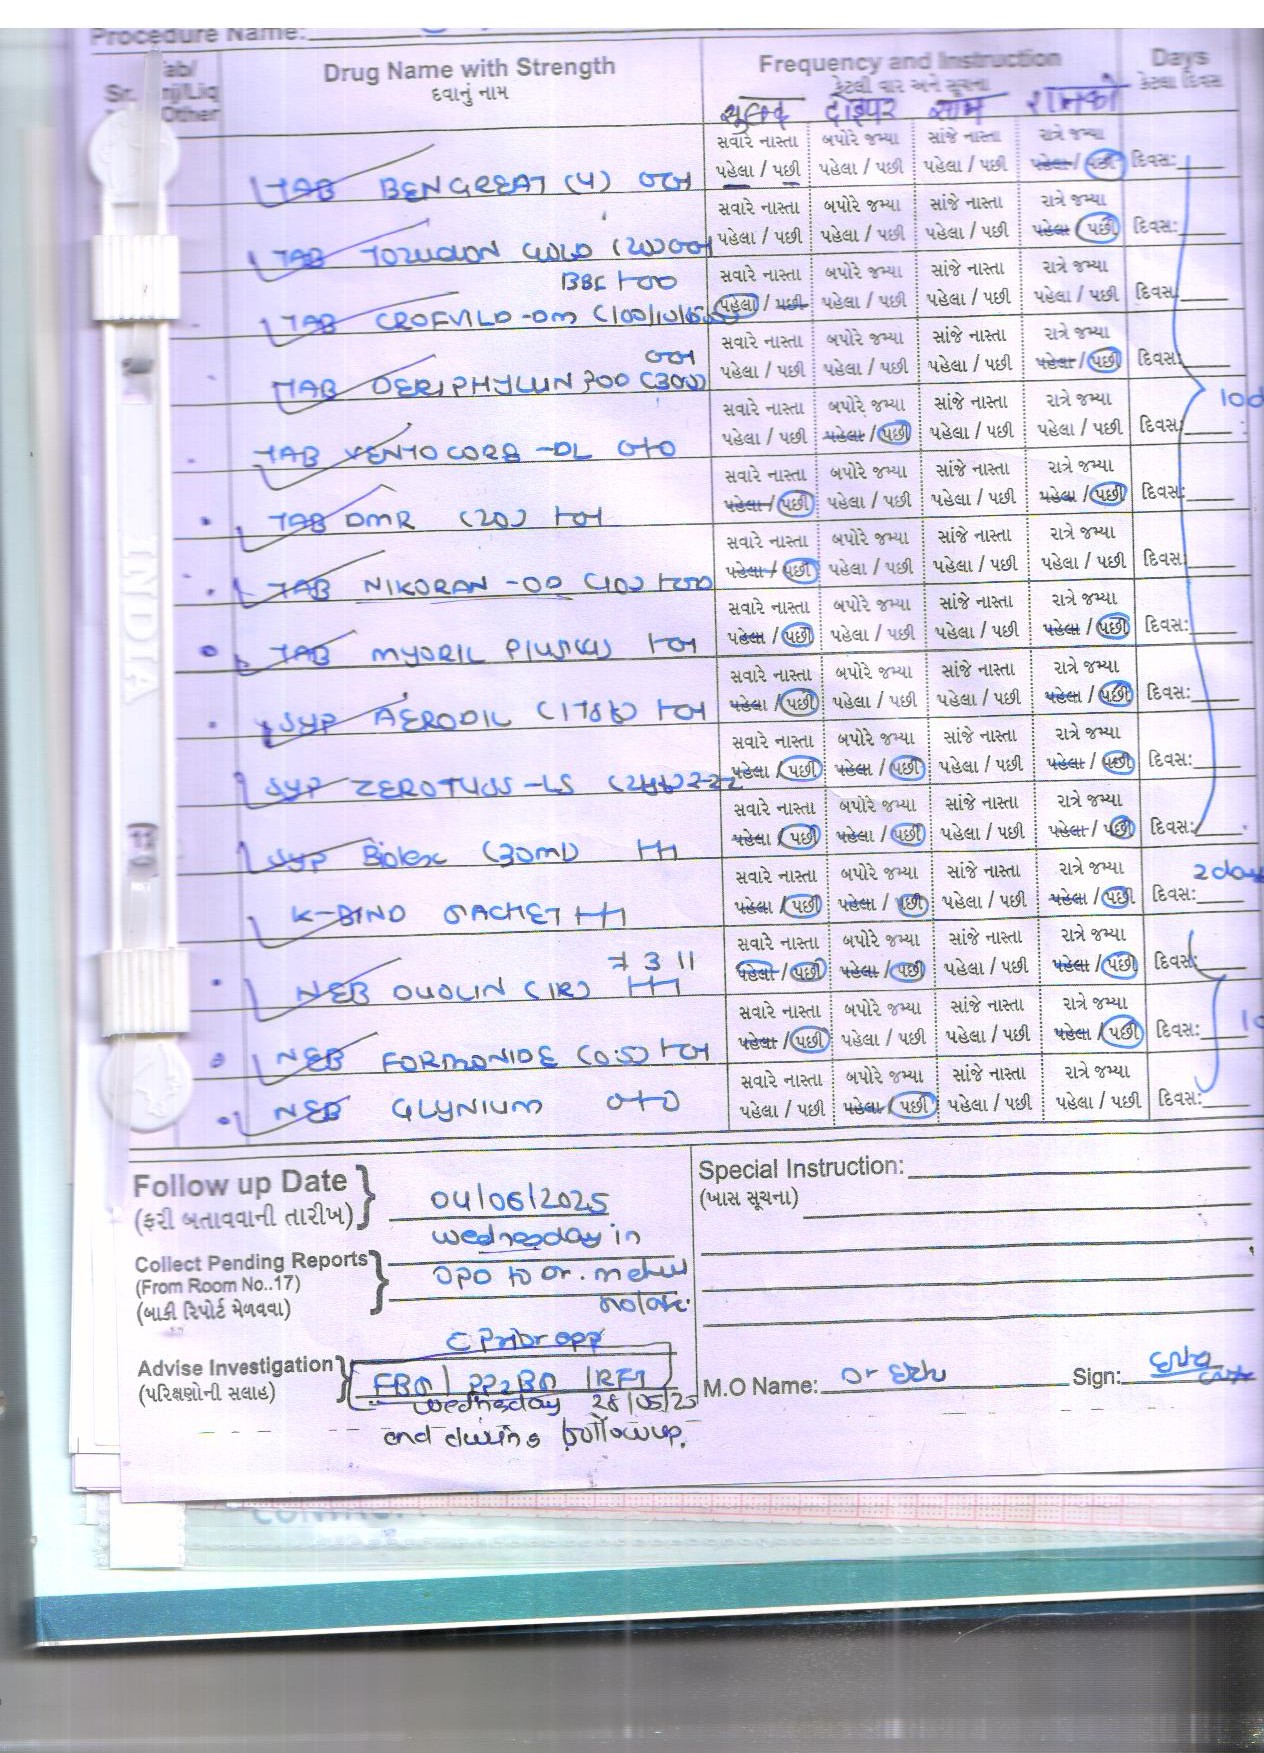 Procedure Name:
Sr. Tab/Inj/Liq Other Drug Name with Strength Frequency and Instruction Days
દવાનું નામ કેટલી વાર અને સૂચના કેટલા દિવસ
सुबह दोपहर शाम रात को
સવારે નાસ્તા બપોરે જમ્યા સાંજે નાસ્તા રાત્રે જમ્યા
TAB BENGREAT (4) પહેલા / પછી પહેલા / પછી પહેલા / પછી પહેલા / પછી દિવસ:
સવારે નાસ્તા બપોરે જમ્યા સાંજે નાસ્તા રાત્રે જમ્યા
TAB પહેલા / પછી પહેલા / પછી પહેલા / પછી પહેલા / પછી દિવસ:
BBF 1-0-0 સવારે નાસ્તા બપોરે જમ્યા સાંજે નાસ્તા રાત્રે જમ્યા
TAB પહેલા / પછી પહેલા / પછી પહેલા / પછી પહેલા / પછી દિવસ:
0-0-1 સવારે નાસ્તા બપોરે જમ્યા સાંજે નાસ્તા રાત્રે જમ્યા
TAB DERIPHYLLIN 300 (300) પહેલા / પછી પહેલા / પછી પહેલા / પછી પહેલા / પછી દિવસ:
સવારે નાસ્તા બપોરે જમ્યા સાંજે નાસ્તા રાત્રે જમ્યા 10d
TAB -DL 0-1-0 પહેલા / પછી પહેલા / પછી પહેલા / પછી પહેલા / પછી દિવસ:
સવારે નાસ્તા બપોરે જમ્યા સાંજે નાસ્તા રાત્રે જમ્યા
TAB DMR (20) 1-0-1 પહેલા / પછી પહેલા / પછી પહેલા / પછી પહેલા / પછી દિવસ:
સવારે નાસ્તા બપોરે જમ્યા સાંજે નાસ્તા રાત્રે જમ્યા
TAB NIKORAN -OD (10) 1-0-0 પહેલા / પછી પહેલા / પછી પહેલા / પછી પહેલા / પછી દિવસ:
સવારે નાસ્તા બપોરે જમ્યા સાંજે નાસ્તા રાત્રે જમ્યા
TAB MYORIL PLUS 1-0-1 પહેલા / પછી પહેલા / પછી પહેલા / પછી પહેલા / પછી દિવસ:
સવારે નાસ્તા બપોરે જમ્યા સાંજે નાસ્તા રાત્રે જમ્યા
SYP AERODIL 1-0-1 પહેલા / પછી પહેલા / પછી પહેલા / પછી પહેલા / પછી દિવસ:
સવારે નાસ્તા બપોરે જમ્યા સાંજે નાસ્તા રાત્રે જમ્યા
SYP ZEROTUSS -LS 2-2-2 પહેલા / પછી પહેલા / પછી પહેલા / પછી પહેલા / પછી દિવસ:
સવારે નાસ્તા બપોરે જમ્યા સાંજે નાસ્તા રાત્રે જમ્યા
SYP (30ml) 1-1-1 પહેલા / પછી પહેલા / પછી પહેલા / પછી પહેલા / પછી દિવસ:
સવારે નાસ્તા બપોરે જમ્યા સાંજે નાસ્તા રાત્રે જમ્યા 2 day
K-BIND SACHET 1-1-1 પહેલા / પછી પહેલા / પછી પહેલા / પછી પહેલા / પછી દિવસ:
7 3 11 સવારે નાસ્તા બપોરે જમ્યા સાંજે નાસ્તા રાત્રે જમ્યા
NEB DUOLIN (1R) 1-1-1 પહેલા / પછી પહેલા / પછી પહેલા / પછી પહેલા / પછી દિવસ:
સવારે નાસ્તા બપોરે જમ્યા સાંજે નાસ્તા રાત્રે જમ્યા
NEB FORMONIDE (0.5) 1-0-1 પહેલા / પછી પહેલા / પછી પહેલા / પછી પહેલા / પછી દિવસ: 10
સવારે નાસ્તા બપોરે જમ્યા સાંજે નાસ્તા રાત્રે જમ્યા
NEB GLYNIUM 0-1-0 પહેલા / પછી પહેલા / પછી પહેલા / પછી પહેલા / પછી દિવસ:
INDIA
Follow up Date 04/06/2025
(ફરી બતાવવાની તારીખ) wednesday in
Collect Pending Reports OPD to Dr.
(From Room No..17)
(બાકી રિપોર્ટ મેળવવા)
C Prior app
Advise Investigation FBS | PP2BS | RFT
(પરિક્ષણોની સલાહ) wednesday 28/05/25
and during followup.
Special Instruction:
(ખાસ સૂચના)
M.O Name: Dr Sign: